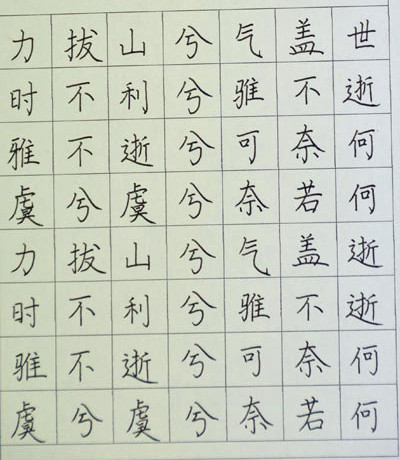 力拔山兮气盖世
时不利兮骓不逝
雅不逝兮可奈何
虞兮虞兮奈若何
力拔山兮气盖逝
时不利兮骓不逝
骓不逝兮可奈何
虞兮虞兮奈若何